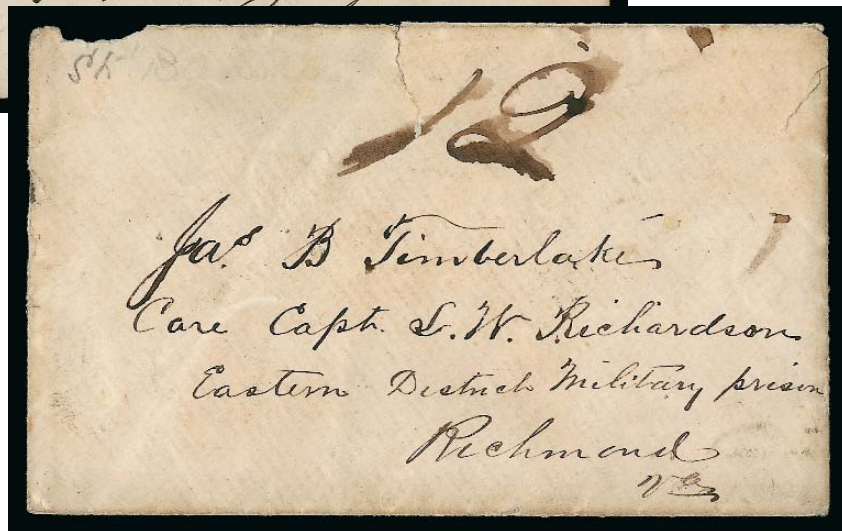 12
Jas B Timberlake
Care Capt. L. W. Richardson
Eastern District Military prison
Richmond
Va